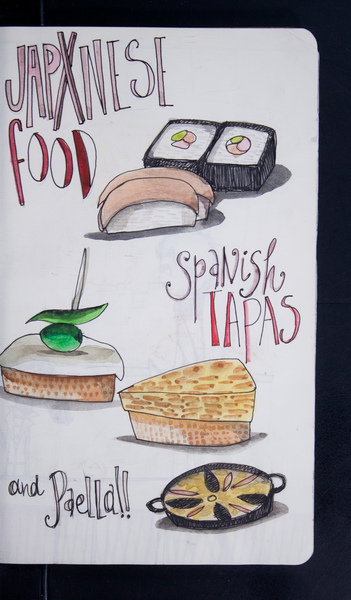 JAPANESE
FOOD
Spanish
TAPAS
and Paella!!